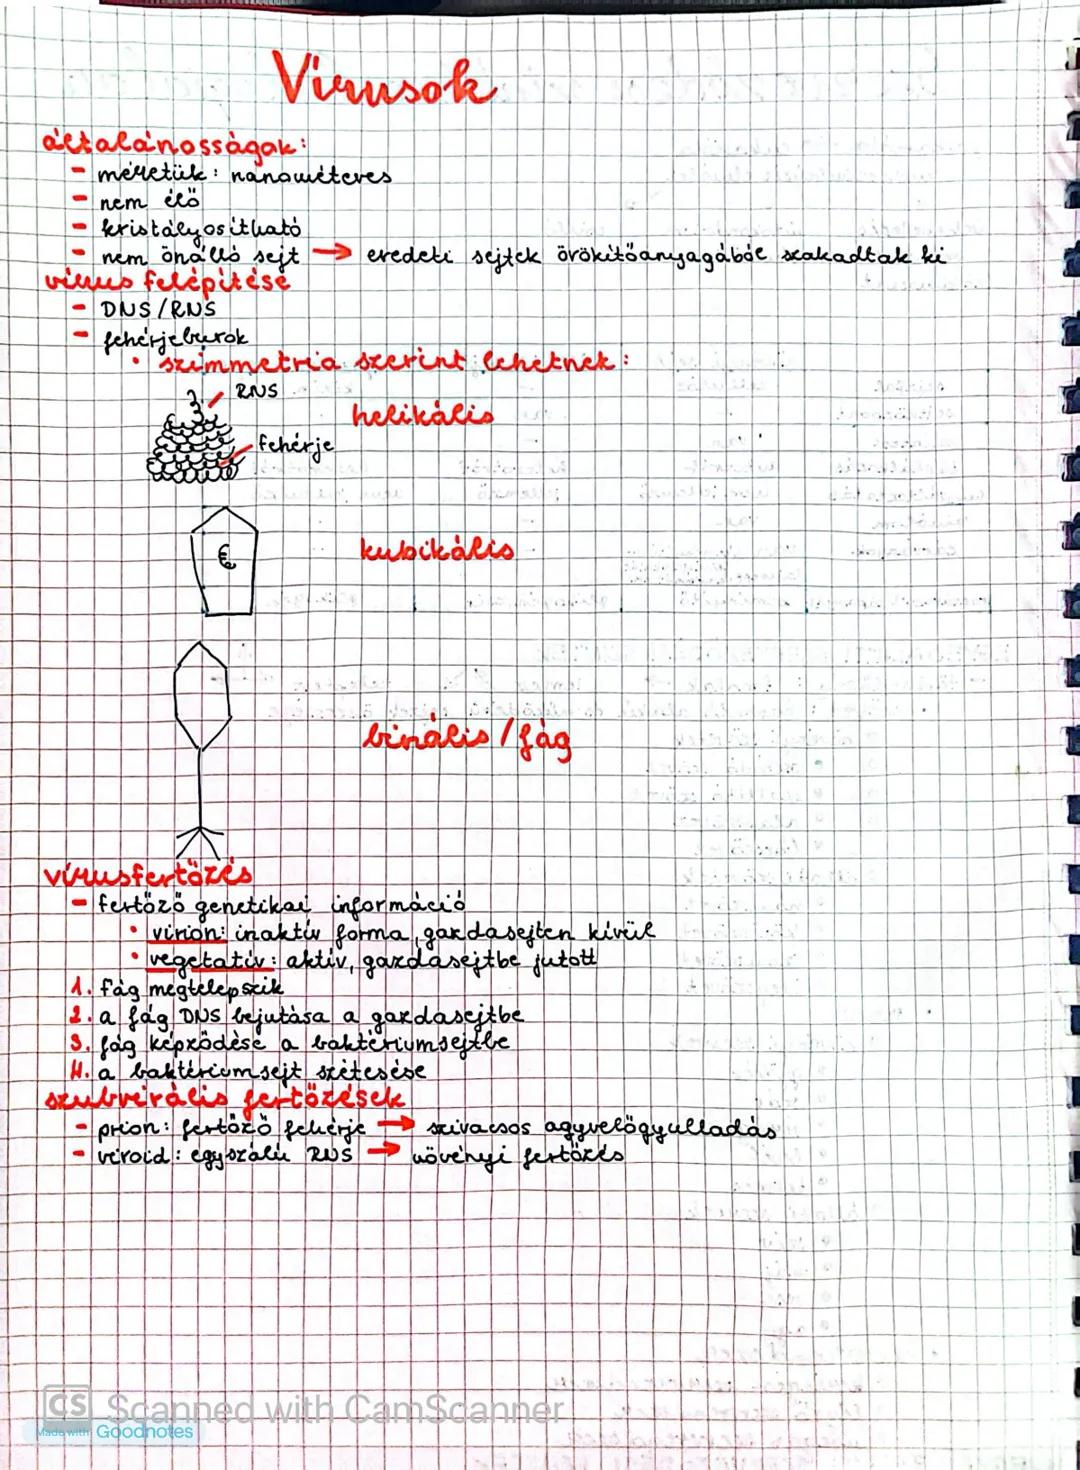 Vírusok
általánosságok:
- méretük: nanométeres
- nem élő
- kristályosítható
- nem önálló sejt → eredeti sejtek örökítőanyagából szakadtak ki
vírus felépítése
- DNS/RNS
- fehérjeburok
• szimmetria szerint lehetnek:
RNS
helikális
fehérje
kubikális
binális/fág
vírusfertőzés
- fertőző genetikai információ
• virion: inaktív forma, gazdasejten kívül
• vegetatív: aktív, gazdasejtbe jutott
1. fág megtelepszik
2. a fág DNS bejutása a gazdasejtbe
3. fág képződése a baktériumsejtbe
4. a baktériumsejt szétesése
szubvirális fertőzések
- prion: fertőző fehérje → szivacsos agyvelőgyulladás
- viroid: egyszálú RNS → növényi fertőzés
CS Scanned with CamScanner
Made with Goodnotes